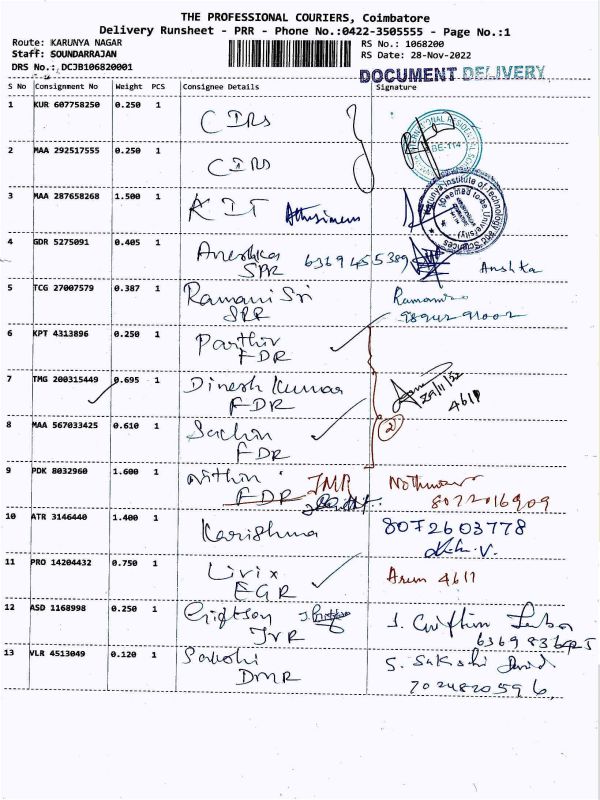 THE PROFESSIONAL COURIERS, Coimbatore
Delivery Runsheet - PRR - Phone No.:0422-3505555 - Page No.:1
Route: KARUNYA NAGAR
RS No.: 1068200
Staff: SOUNDARRAJAN
RS Date: 28-Nov-2022
DRS No.: DCJB106820001
DOCUMENT DELIVERY
S No Consignment No Weight PCS Consignee Details Signature
1 KUR 607758250 0.250 1 CIRs
INTERNATIONAL RESIDENTIAL
BE-114
2 MAA 292517555 0.250 1 CIRs
3 MAA 287658268 1.500 1 KIT
Karunya Institute of Technology and Sciences
(Deemed to be University)
4 GDR 5275091 0.405 1 Aneshka 6369455389 Anshka
SPR
5 TCG 27007579 0.387 1 Ramani Sri
SRR
6 KPT 4313896 0.250 1 Parthiv
FDR
7 TMG 200315449 0.695 1 Dinesh Kumar
FDR 29/11/22
4611
8 MAA 567033425 0.610 1 Sachin
FDR
2
9 PDK 8032960 1.600 1 Nithin JMR
FDR 8072016909
10 ATR 3146440 1.400 1 Karishma 8072603778
11 PRO 14204432 0.750 1 Livix Arun 4611
EGR
12 ASD 1168998 0.250 1
JVR
13 VLR 4513049 0.120 1 Sakshi S. Sakshi
DMR 7024820596